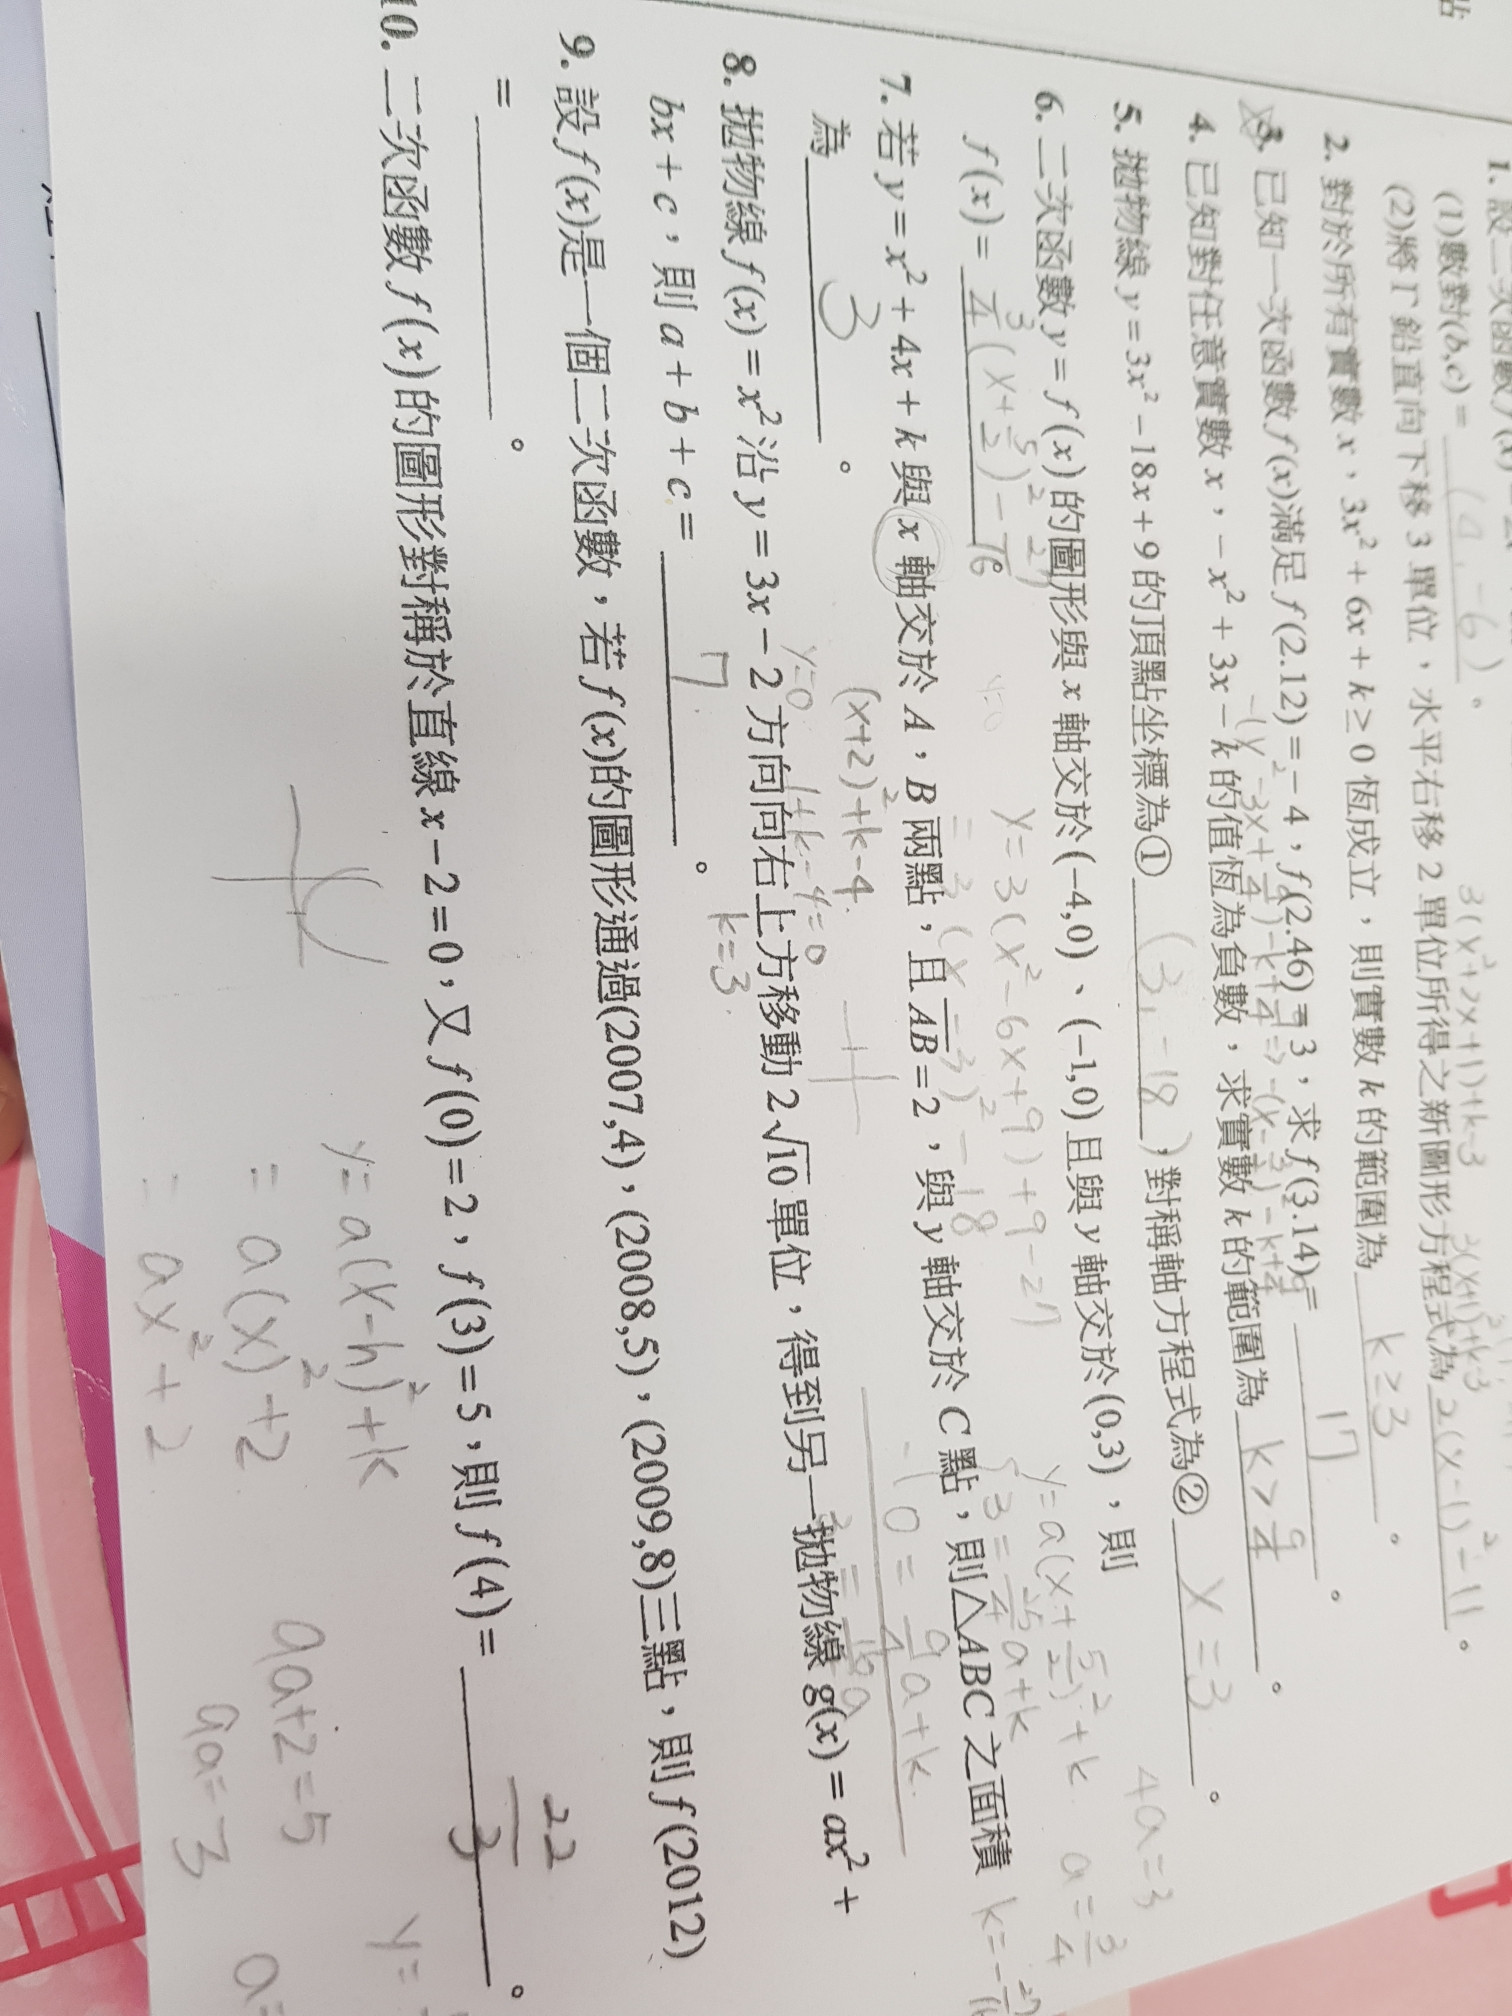 1. 設二次函數 f(x)
(1)數對(b,c) = -6) 。
(2)將 Γ 鉛直向下移 3 單位，水平右移 2 單位所得之新圖形方程式為 2(x-1)²-11 。
3(x²+2x+1)+k-3
2. 對於所有實數 x，3x² + 6x + k ≥ 0 恆成立，則實數 k 的範圍為 k≥3 。
3. 已知一次函數 f(x)滿足 f(2.12) = -4，f(2.46) = 3，求 f(3.14) = 17 。
4. 已知對任意實數 x，-x² + 3x - k 的值恆為負數，求實數 k 的範圍為 k > 9/4 。
5. 拋物線 y = 3x² - 18x + 9 的頂點坐標為① (3, -18) ，對稱軸方程式為② x=3 。
y=3(x²-6x+9)+9-27
=3(x-3)²-18
6. 二次函數 y = f(x) 的圖形與 x 軸交於(-4,0)、(-1,0) 且與 y 軸交於(0,3)，則
f(x) = 3/4(x+5/2)²-27/16
y=a(x+5/2)²+k
3=25/4a+k
0=9/4a+k
4a=3
a=3/4
7. 若 y = x² + 4x + k 與 x 軸交於 A，B 兩點，且 AB = 2，與 y 軸交於 C 點，則△ABC 之面積
為 3 。
(x+2)²+k-4
y=0 1+k-4=0
k=3
8. 拋物線 f(x) = x² 沿 y = 3x - 2 方向向右上方移動 2√10 單位，得到另一拋物線 g(x) = ax² +
bx + c，則 a + b + c = 7 。
9. 設 f(x)是一個二次函數，若 f(x)的圖形通過(2007,4)，(2008,5)，(2009,8)三點，則 f(2012)
= 。
10. 二次函數 f(x)的圖形對稱於直線 x - 2 = 0，又 f(0) = 2，f(3) = 5，則 f(4) = 。
22/3
y=a(x-h)²+k
=a(x)²+2
=ax²+2
9a+2=5
9a=3
y=
a=